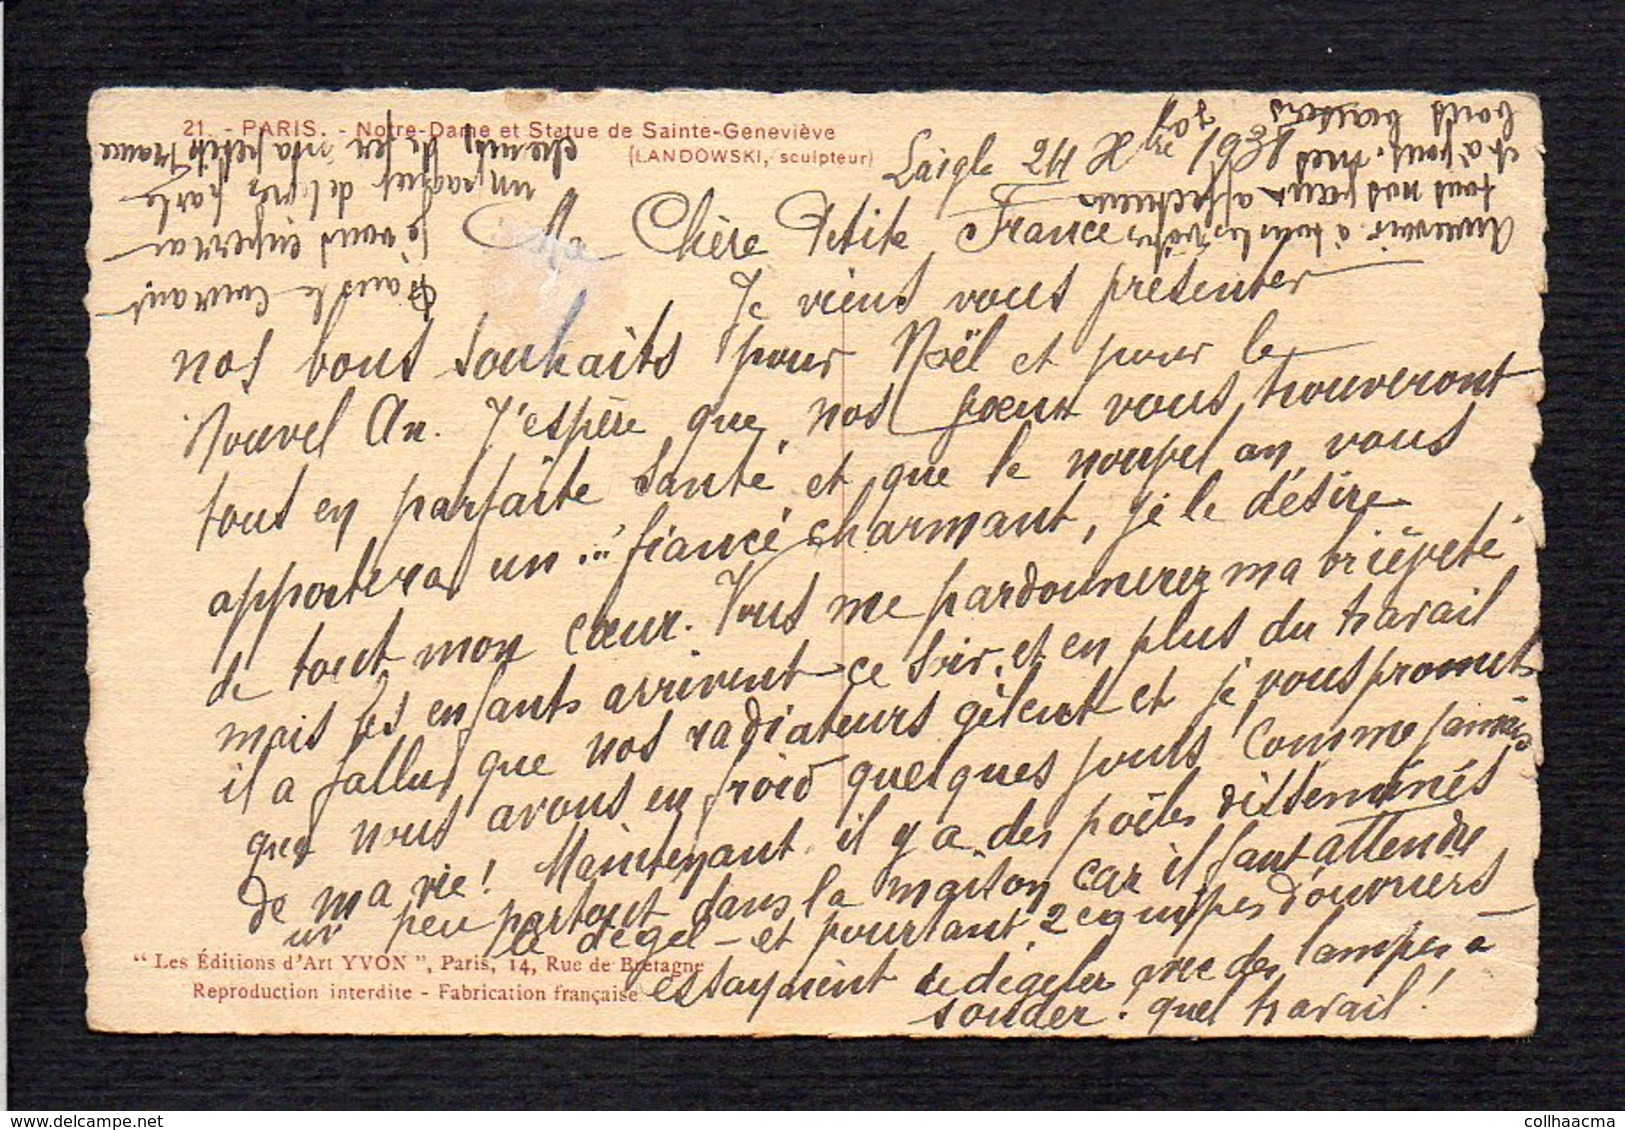 21. - PARIS. - Notre-Dame et Statue de Sainte-Geneviève
(LANDOWSKI, sculpteur)
Laigle 24 Xbre 1938
Ma Chère Petite France
Je viens vous présenter
nos bons souhaits pour Noël et pour le
Nouvel An. J'espère que nos vœux vous trouveront
tous en parfaite santé et que le nouvel an vous
apportera un ..." fiancé charmant, je le désire
de tout mon cœur. Vous me pardonnerez ma brièveté
mais les enfants arrivent ce soir, et en plus du travail
il a fallu que nos radiateurs gèlent et je vous promets
que nous avons eu froid quelques jours comme jamais
de ma vie! Maintenant il y a des poêles disséminés
un peu partout dans la maison car il faut attendre
le dégel - et pourtant 2 équipes d'ouvriers
essayaient de dégeler avec des lampes à
souder! quel travail!
Dans le courant
je vous enverrai
un paquet de
chemin de fer ma petite France
Au revoir à tous les vôtres
tous nos vœux affectueux
et à vous mes
bons baisers
" Les Éditions d'Art YVON ", Paris, 14, Rue de Bretagne
Reproduction interdite - Fabrication française
collhaacma